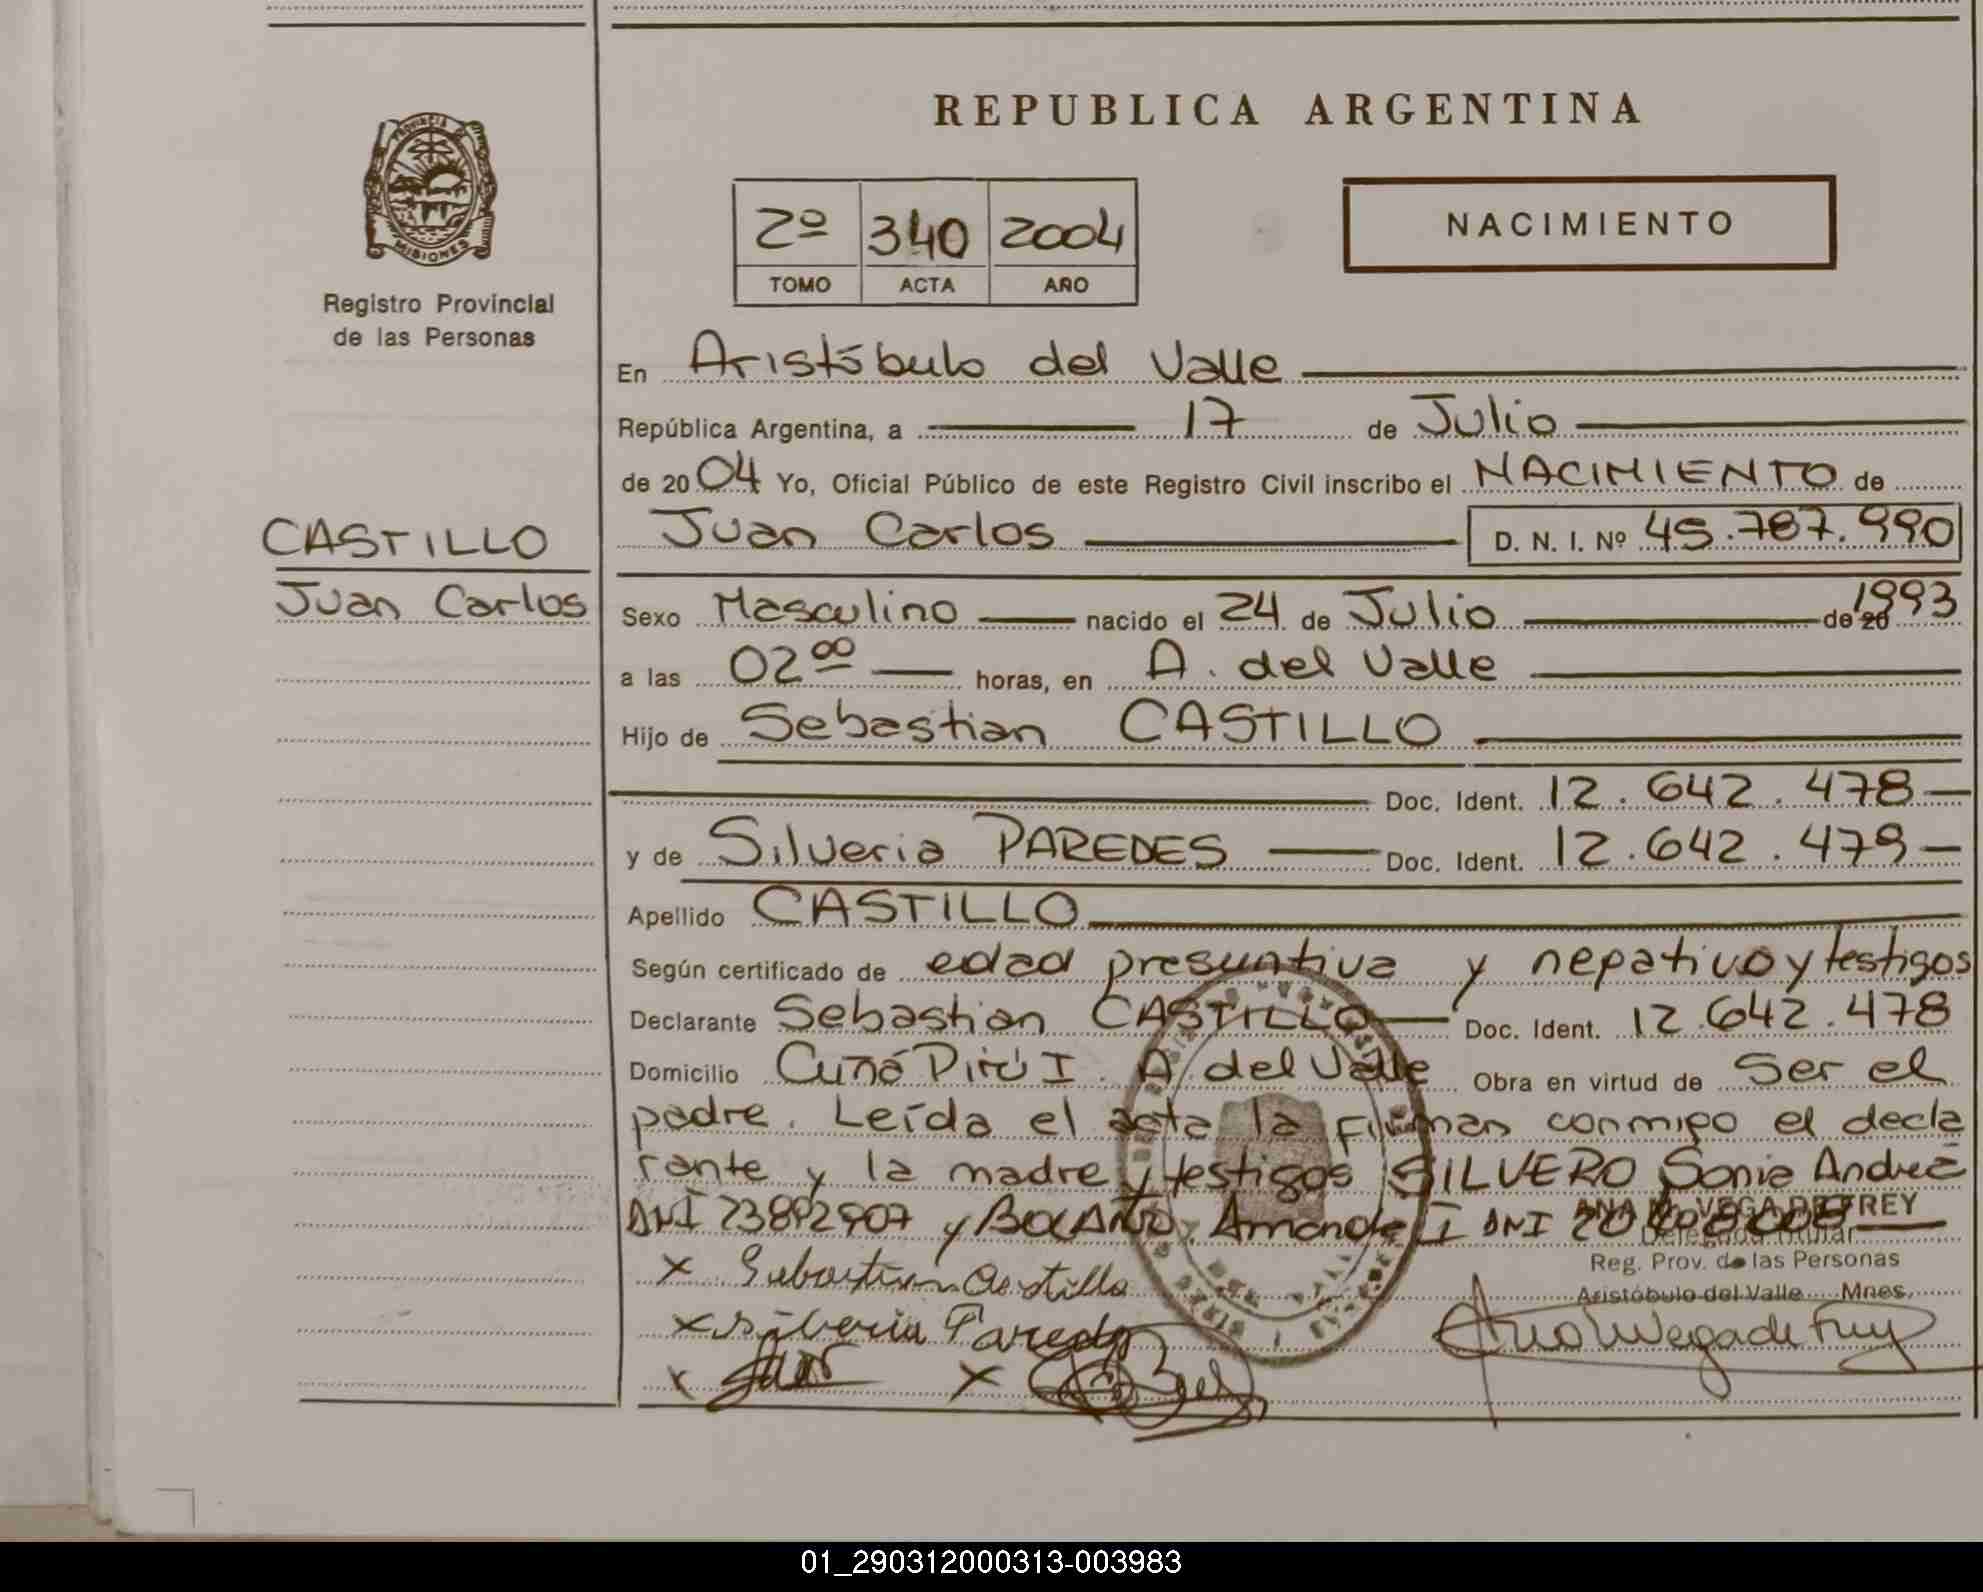 REPUBLICA ARGENTINA
PROVINCIA DE
MISIONES
Registro Provincial
de las Personas
2º 340 2004
TOMO ACTA AÑO
NACIMIENTO
En Aristóbulo del Valle
República Argentina, a 17 de Julio
de 2004 Yo, Oficial Público de este Registro Civil inscribo el NACIMIENTO de
CASTILLO
Juan Carlos
Juan Carlos D. N. I. Nº 45.787.990
Sexo Masculino nacido el 24 de Julio de 20 1993
a las 02 00 horas, en A. del Valle
Hijo de Sebastian CASTILLO
Doc. Ident. 12.642.478
y de Silveria PAREDES Doc. Ident. 12.642.479
Apellido CASTILLO
Según certificado de edad presuntiva y negativo y testigos
Declarante Sebastian CASTILLO Doc. Ident. 12.642.478
Domicilio Cuñá Pirú I. A. del Valle Obra en virtud de Ser el
padre. Leída el acta la firman conmigo el decla
rante y la madre y testigos SILVERO Sonia Andrea
DNI 23892907 y BOLAÑO, Amanda I DNI
ANA M. VEGA DE FREY
Delegada Titular
Reg. Prov. de las Personas
Aristóbulo del Valle Mnes.
x Sebastian Castillo
x Silveria Paredes
x x
Ana M Vega de Frey
01_290312000313-003983